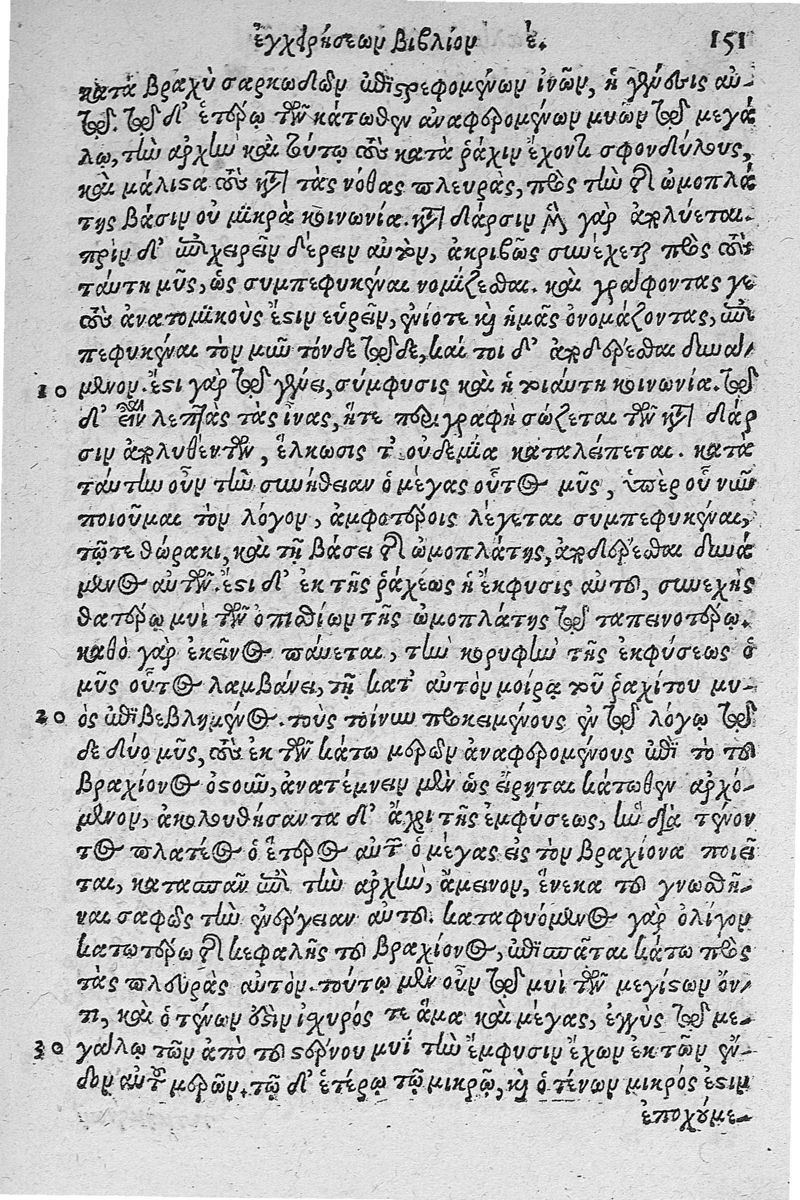 ἐγχειρήσεων Βιβλίον ε. 151
κατὰ βραχὺ σαρκωδῶν ἐπιστρεφομένων ἰνῶν, ἡ γένεσις αὐ-
τῷ. τῷ δ' ἑτέρῳ τῶν κάτωθεν ἀναφερομένων μυῶν τῷ μεγά
λῳ, τὴν ἀρχὴν καὶ τούτῳ τοὺς κατὰ ῥάχιν ἔχοντι σφονδύλους,
καὶ μάλιστα τοὺς κατὰ τὰς νόθας πλευρὰς, πρὸς τὴν τῆς ὠμοπλά
της βάσιν οὐ μικρὰ κοινωνία. κατὰ δέρσιν μὲν γὰρ ἀπολύεται.
πρὶν δ' ἐπιχειρεῖν δέρειν αὐτὸν, ἀκριβῶς συνέχεται πρὸς τοὺς
ταύτῃ μῦς, ὡς συμπεφυκέναι νομίζεσθαι. καὶ γράφοντας γε
τοὺς ἀνατομικοὺς ἔστιν εὑρεῖν, ἐνίοτε καὶ ἡμᾶς ὀνομάζοντας, ἐπι
πεφυκέναι τὸν μῦν τόνδε τῷδε, καί τοι δ' ἀποδέρεσθαι δυνάι
10 μενον. ἔστι γὰρ τῷ γένει, σύμφυσις καὶ ἡ τοιάυτη κοινωνία. τῷ
δ' εἶναι λεπτὰς τὰς ἶνας, ἥτε περιγραφὴ σώζεται τῶν κατὰ δέρ
σιν ἀπολυθέντων, ἕλκωσις τ' οὐδεμία καταλείπεται. κατὰ
ταύτην οὖν τὴν συνήθειαν ὁ μέγας οὗτος μῦς, ὑπὲρ οὗ νῦν
ποιοῦμαι τὸν λόγον, ἀμφοτέροις λέγεται συμπεφυκέναι,
τῷτε θώρακι, καὶ τῇ βάσει τῆς ὠμοπλάτης, ἀποδέρεσθαι δυνά
μενος αὐτῶν. ἔστι δ' ἐκ τῆς ῥάχεως ἡ ἔκφυσις αὐτοῦ, συνεχὴς
θατέρῳ μυὶ τῶν ὀπισθίων τῆς ὠμοπλάτης τῷ ταπεινοτέρῳ.
καθὸ γὰρ ἐκεῖνος πάυεται, τὴν κορυφὴν τῆς ἐκφύσεως ὁ
μῦς οὗτος λαμβάνει, τῇ κατ' αὐτὸν μοίρᾳ τοῦ ῥαχίτου μυ-
20 ὸς ἐπιβεβλημένος. τοὺς τοίνυν προκειμένους ἐν τῷ λόγῳ τῷ
δε δύο μῦς, τοὺς ἐκ τῶν κάτω μερῶν ἀναφερομένους ἐπὶ τὸ τοῦ
βραχίονος ὀστοῦν, ἀνατέμνειν μὲν ὡς εἴρηται κάτωθεν ἀρχό-
μενον, ἀκολουθήσαντα δ' ἄχρι τῆς ἐμφύσεως, ἣν διὰ τένον
τος πλατέος ὁ ἕτερος αὐτῶν ὁ μέγας εἰς τὸν βραχίονα ποιεῖ
ται, κατασπᾶν ἐπὶ τὴν ἀρχὴν, ἄμεινον, ἕνεκα τοῦ γνωσθῆ-
ναι σαφῶς τὴν ἐνέργειαν αὐτοῦ. καταφυόμενος γὰρ ὀλίγον
κατωτέρω τῆς κεφαλῆς τοῦ βραχίονος, ἐπισπᾶται κάτω πρὸς
τὰς πλευρὰς αὐτόν. τούτῳ μὲν οὖν τῷ μυὶ τῶν μεγίστων ὄν-
τι, καὶ ὁ τένων ἐστὶν ἰχυρός τε ἅμα καὶ μέγας, ἐγγὺς τῷ με-
30 γάλῳ τῶν ἀπὸ τοῦ στέρνου μυὶ τὴν ἔμφυσιν ἔχων ἐκ τῶν ἔν-
δον αὐτοῦ μερῶν. τῷ δ' ἑτέρῳ τῷ μικρῷ, καὶ ὁ τένων μικρός ἐστιν
ἐποχούμε-